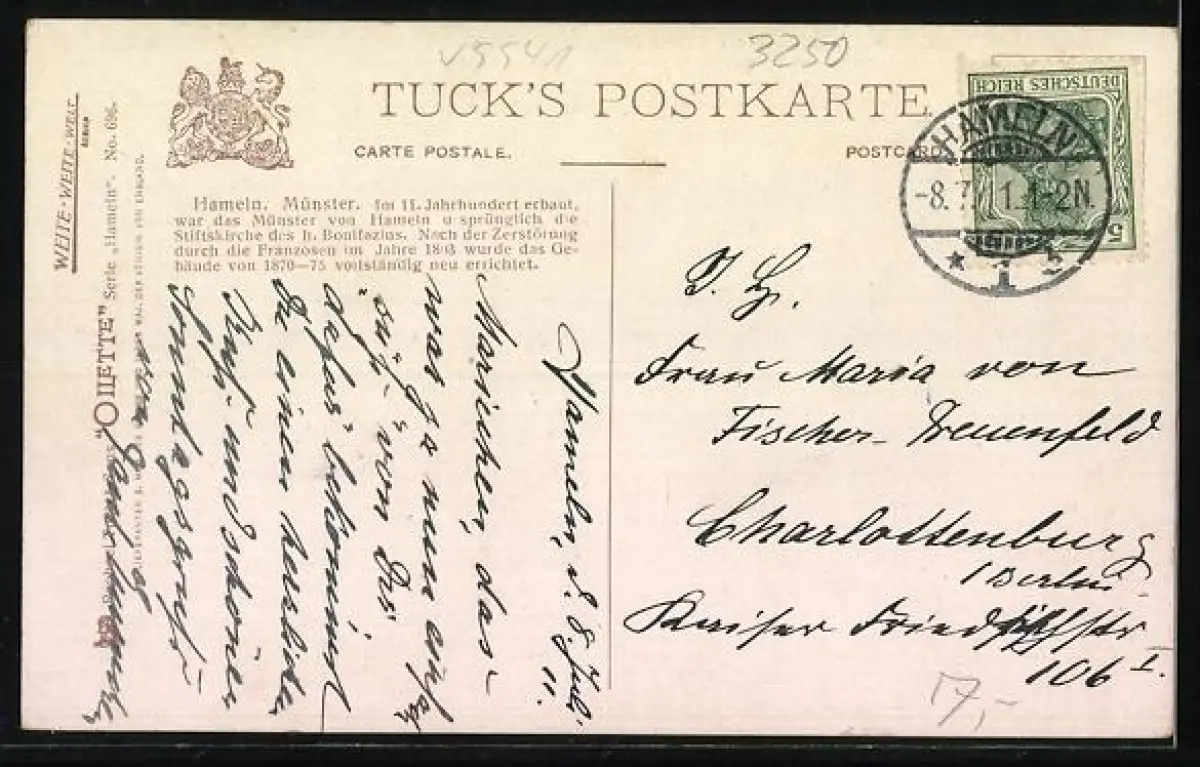 v5541
3250
TUCK'S POSTKARTE.
CARTE POSTALE.
POSTCARD
DEUTSCHES REICH
5
HAMELN
-8.7. 11.1-2N.
* 1 c
Hameln. Münster. Im 11. Jahrhundert erbaut,
war das Münster von Hameln ursprünglich die
Stiftskirche des h. Bonifazius. Nach der Zerstörung
durch die Franzosen im Jahre 1803 wurde das Ge-
bäude von 1870—75 vollständig neu errichtet.
WEITE-WEITE-WELT
"OILETTE" Serie „Hameln". No. 686.
Hameln, d. 8. Juli
11.
Mariechen, das
war ja nun auch
süß von Dir,
dafür bekommst
Du einen
Kuß und schönen
Sonntagsgruß
I. H.
Frau Maria von
Fischer-Treuenfeld
Charlottenburg
/Berlin
Kaiser Friedrichstr
106 I.
17,-